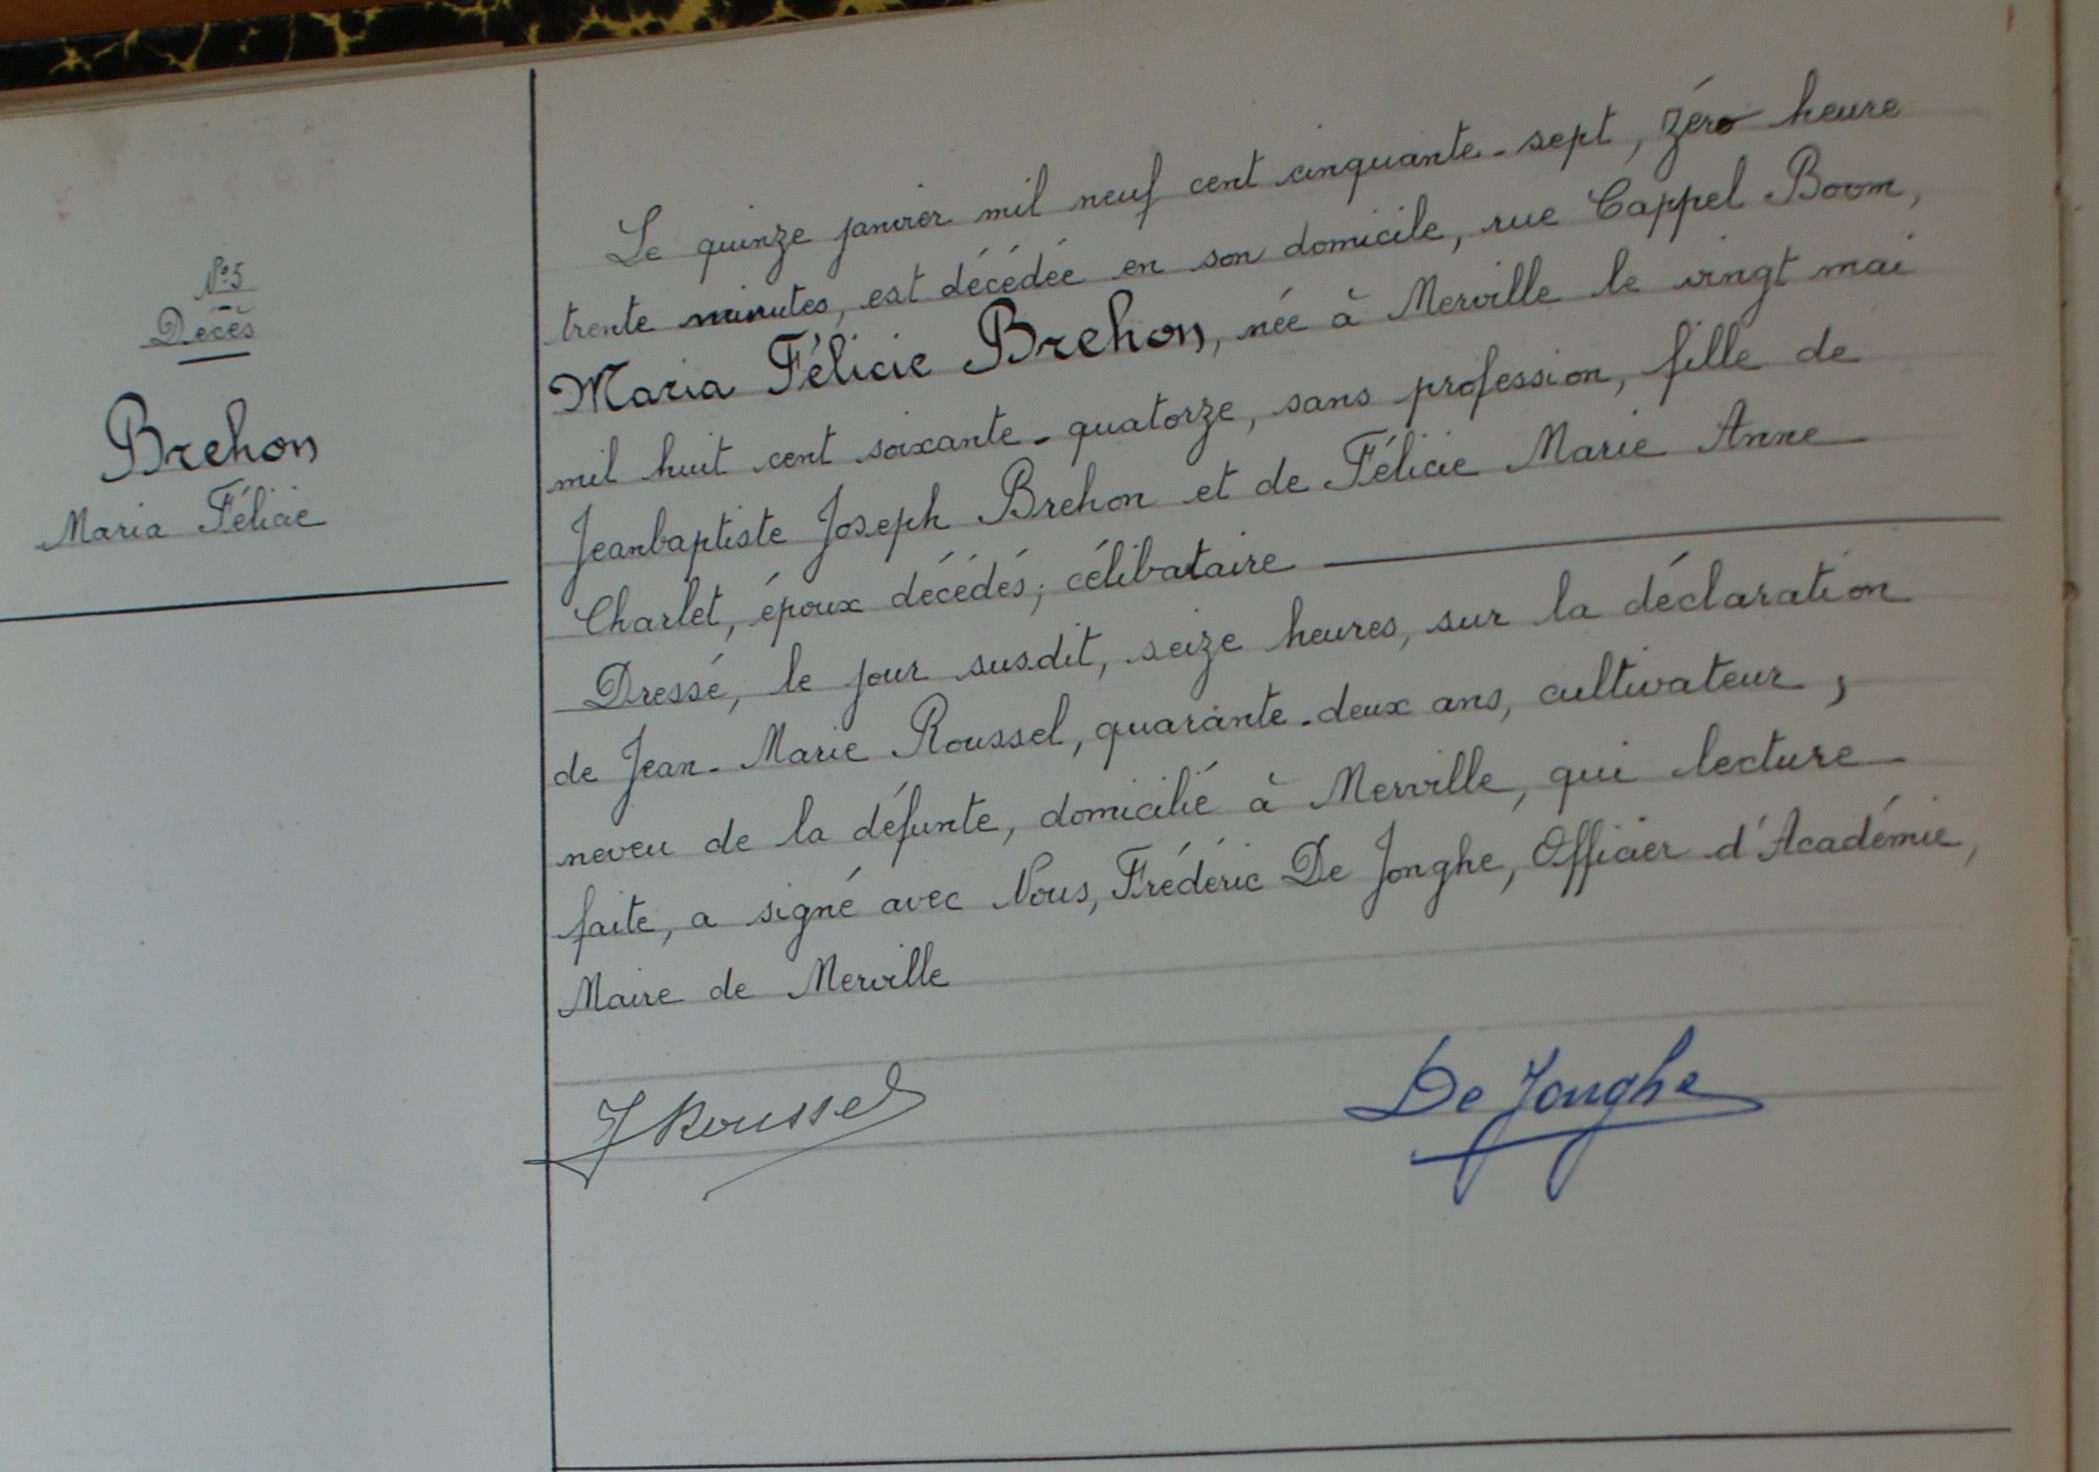 N°5
Décès
Brehon
Maria Félicie
Le quinze janvier mil neuf cent cinquante-sept, zéro heure
trente minutes, est décédée en son domicile, rue Cappel Boom,
Maria Félicie Brehon, née à Merville le vingt mai
mil huit cent soixante-quatorze, sans profession, fille de
Jeanbaptiste Joseph Brehon et de Félicie Marie Anne
Charlet, époux décédés; célibataire
Dressé, le jour susdit, seize heures, sur la déclaration
de Jean-Marie Roussel, quarante-deux ans, cultivateur,
neveu de la défunte, domicilié à Merville, qui lecture
faite, a signé avec Nous, Frédéric De Jonghe, Officier d'Académie,
Maire de Merville
J Roussel
De Jonghe